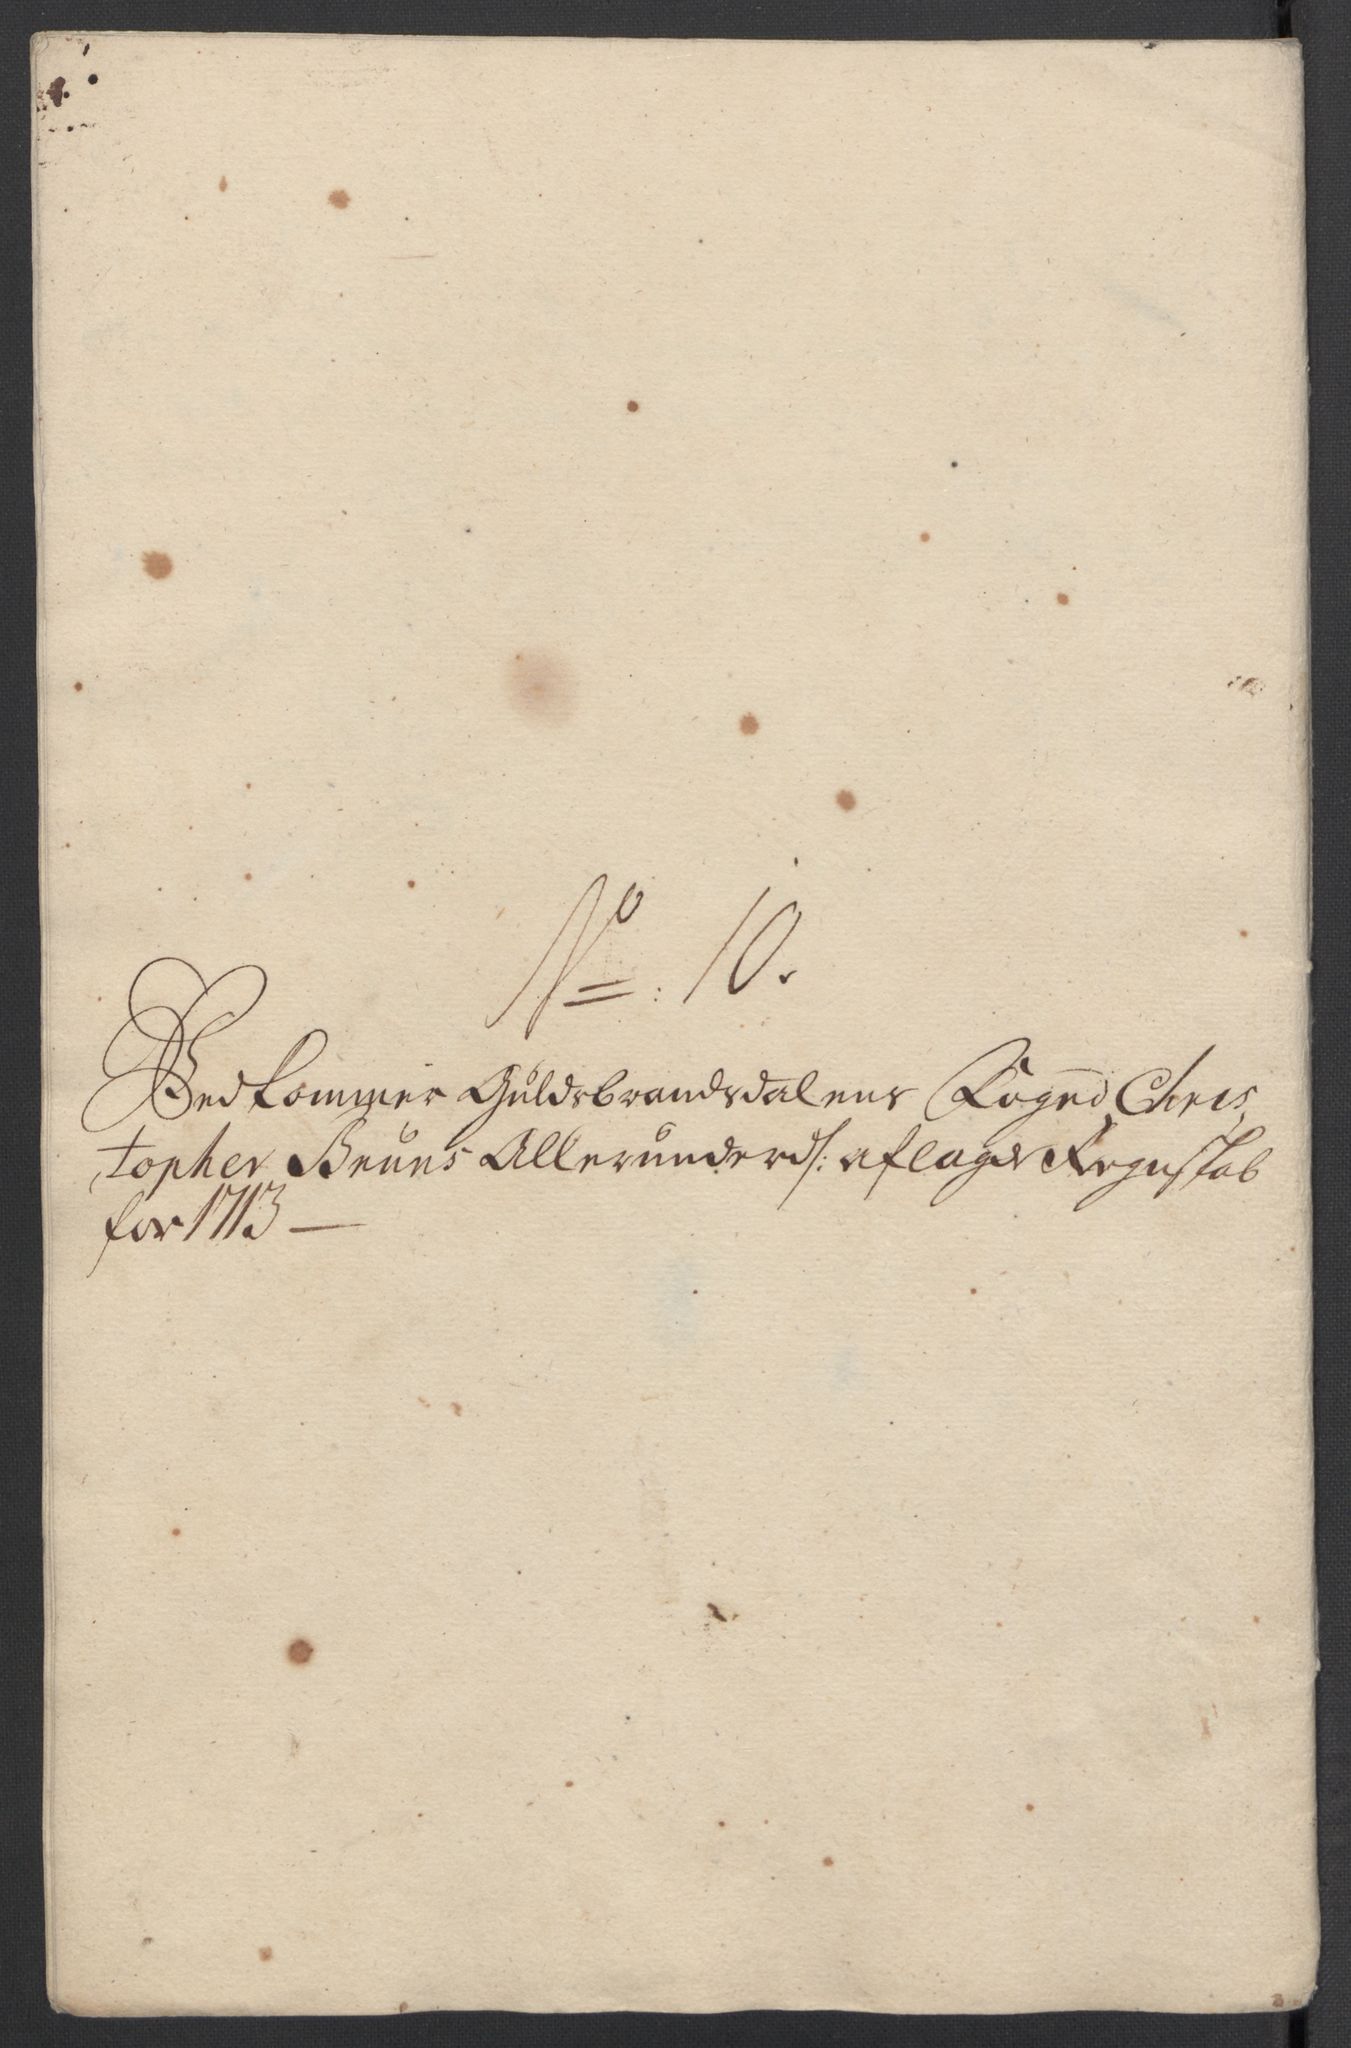 No: 10.
Vedkommer Guldsbrandsdalens Foged Chris,
topher Bruns Allerunderd/: aflagde Regnskab
for 1713 —